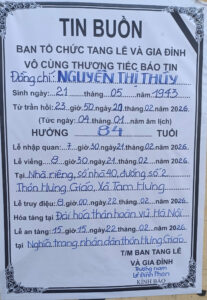 TIN BUỒN
BAN TỔ CHỨC TANG LỄ VÀ GIA ĐÌNH
VÔ CÙNG THƯƠNG TIẾC BÁO TIN
Đồng chí: NGUYỄN THỊ THỦY
Sinh ngày: 21 tháng 05 năm 1943
Từ trần hồi: 23 giờ 50 ngày 20 tháng 02 năm 2026.
(Tức ngày: 04 tháng 01 năm âm lịch)
HƯỞNG 84 TUỔI
Lễ nhập quan: 7 giờ 30 ngày 21 tháng 02 năm 2026.
Lễ viếng: 8 giờ 30 ngày 21 tháng 02 năm 2026.
Tại: Nhà riêng, số nhà 40, đường số 2
Thôn Hưng Giáo, Xã Tam Hưng
Lễ truy điệu: 8 giờ 00 ngày 22 tháng 02 năm 2026.
Hỏa táng tại Đài hóa thân hoàn vũ, Hà Nội
Lễ an táng: 15 giờ 15 ngày 22 tháng 02 năm 2026.
Tại Nghĩa trang nhân dân thôn Hưng Giáo
T/M BAN TANG LỄ
VÀ GIA ĐÌNH
Trưởng nam
Lê Đình Phan
KÍNH BÁO